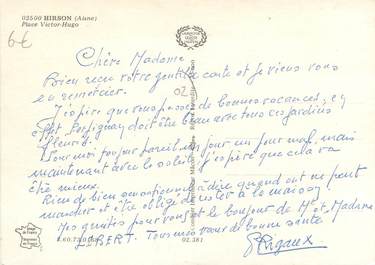 02500 HIRSON (Aisne)
Place Victor-Hugo
6€
Chère Madame
Bien reçu votre gentille carte et je viens vous
en remercier.
02
J'espère que vous passez de bonnes vacances, en
effet Perpignan doit être beau avec tous ces jardins
fleuris.
Pour moi toujours pareil un jour un jour mal, mais
maintenant avec le soleil j'espère que cela va
être mieux.
Rien de bien sensationnel à dire quand on ne peut
marcher et être obligé de rester à la maison
Mes amitiés pour vous et le bonjour de Mr et Madame
LIBERT. Tous mes vœux de bonne santé !
Rigaux
02.381